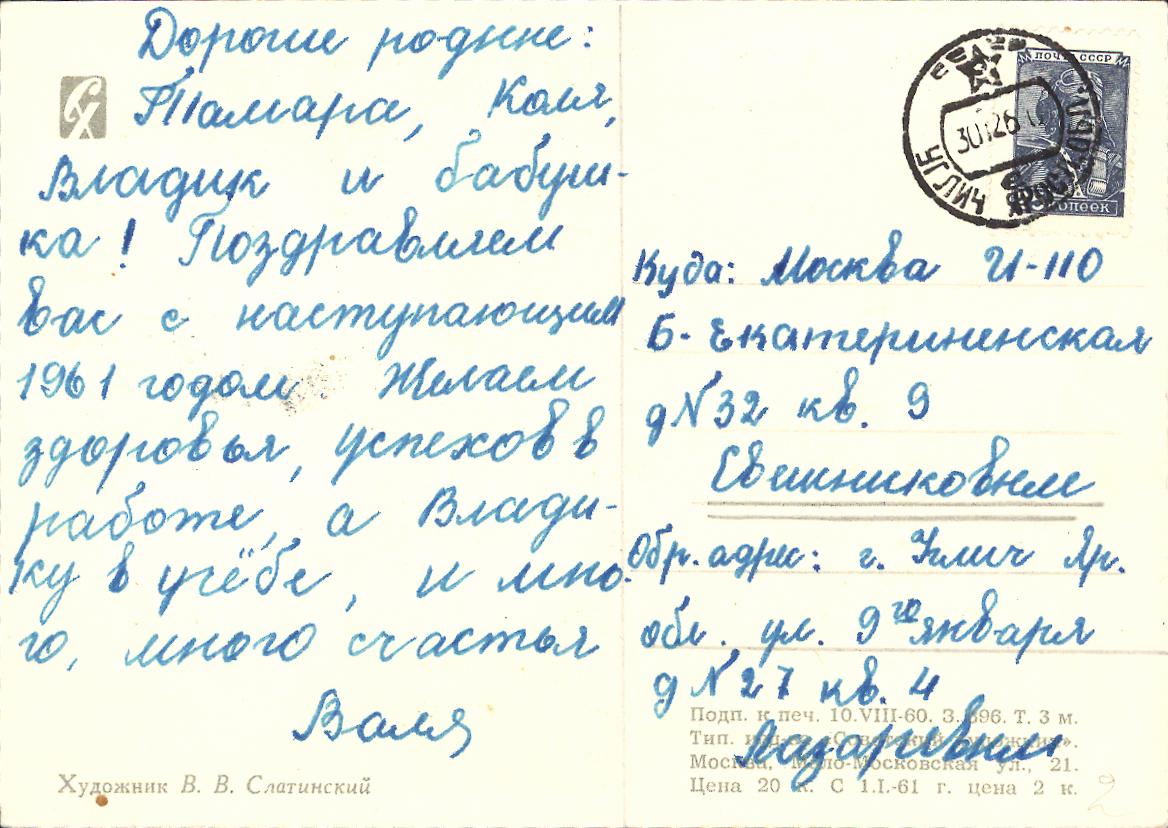 Дорогие родные:
Тамара, Коля,
Владик и бабуш-
ка! Поздравляем
вас с наступающим
1961 годом Желаем
здоровья, успехов в
работе, а Влади-
ку в учёбе, и мно-
го, много счастья
Валя
Художник В. В. Слатинский
ПОЧТА СССР
УГЛИЧ
30 12 6
КОПЕЕК
Куда: Москва И-110
Б-Екатериненская
д N 32 кв. 9
Свешниковым
Обр. адрес: г. Углич Яр.
обл. ул. 9го января
д N 27 кв. 4
Лазаревым
Подп. к печ. 10.VIII-60. З. 896. Т. 3 м.
Тип. изд-ва «Советский художник».
Москва, Мало-Московская ул., 21.
Цена 20 к. С 1.I.-61 г. цена 2 к.
2